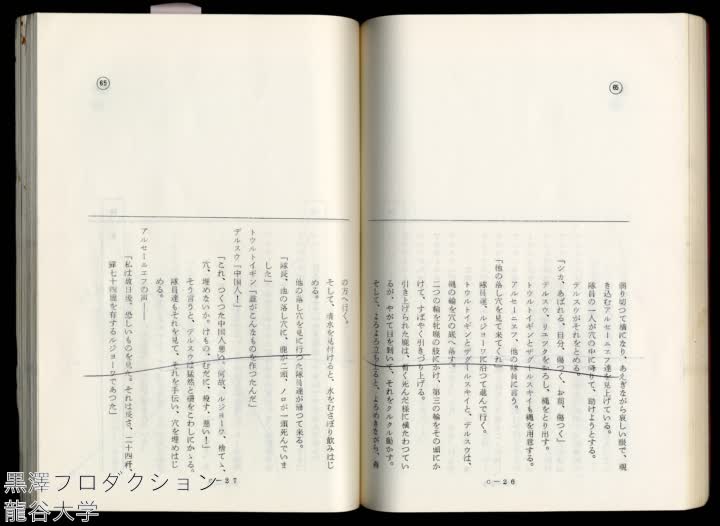 65
弱り切つて横になり、あえぎながら哀しい眼で、覗
き込むアルセーニエフ達を見上げている。
隊員の一人が穴の中に降りて、助けようとする。
デルスウがそれをとめる。
「シカ、あばれる。自分、傷つく、お前、傷つく」
デルスウ、リュツクをおろし、縄をとり出す。
トウルトイギンとザグールスキイも縄を用意する。
アルセーニエフ、他の隊員に言う。
「他の落し穴を見て来てくれ」
隊員達、ルジョーワに沿つて進んで行く。
トウルトイギンとザグールスキイと、デルスウは、
縄の輪を穴の底へ落す。
二つの輪を牝鹿の肢にかけ、第三の輪をその頭にか
けて、すばやく引きづり上げる。
引き上げられた鹿は、暫く死んだ様に横たわつてい
るが、やがて目を剝いて、それをクルクル動かす。
そして、よろよろ立ち上ると、よろめきながら、森
c—26
65
の方へ行く。
そして、清水を見付けると、水をむさぼり飲みはじ
める。
他の落し穴を見に行つた隊員達が帰つて来る。
「隊長、他の落し穴に、鹿が二頭、ノロが一頭死んでいま
した」
トウルトイギン「誰がこんなものを作つたんだ」
デルスウ「中国人!」
「これ、つくつた中国人悪い。何故、ルジョーワ、捨てゝ、
穴、埋めないか。けもの、むだに、殺す、悪い!」
そう言うと、デルスウは猛然と柵をこわしにかゝる。
隊員達もそれを見て、それを手伝い、穴を埋めはじ
める。
アルセーニエフの声——
「私は数日後、恐しいものを見た。それは長さ、二十四粁、
罠七十四個を有するルジョーワであつた」
c—27
黒澤プロダクション
龍谷大学